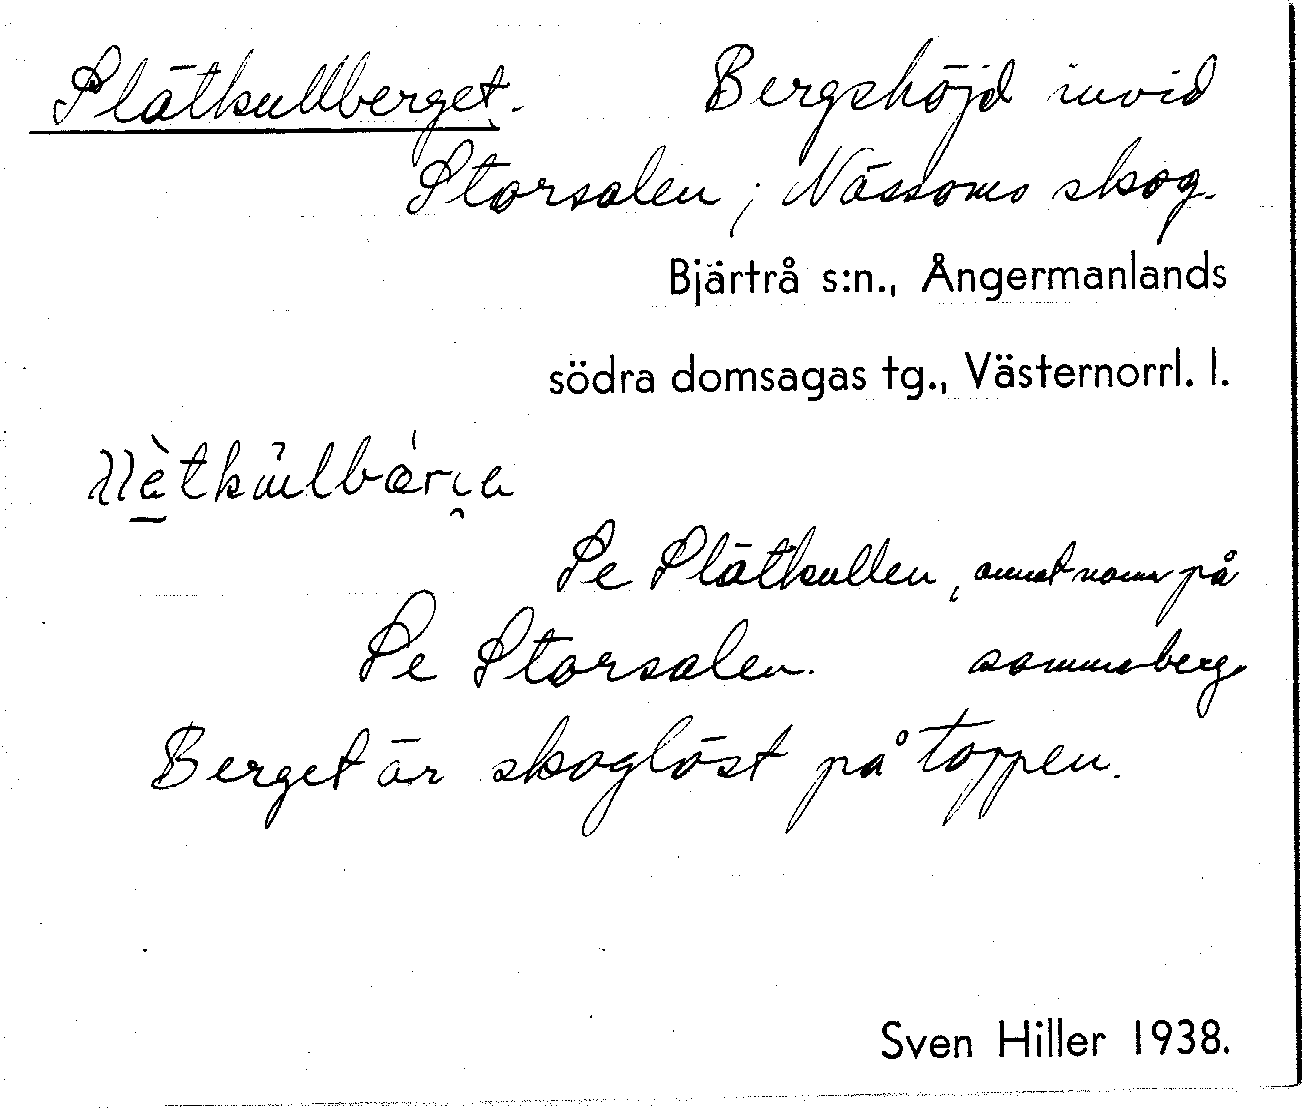 Slätkullberget. Bergshöjd invid
Storsalen, Nässoms skog.
Bjärtrå s:n., Ångermanlands
södra domsagas tg., Västernorrl. l.
Se Slätkullen, annat namn på
Se Storsalen. samma berg.
Berget är skoglöst på toppen.
Sven Hiller 1938.